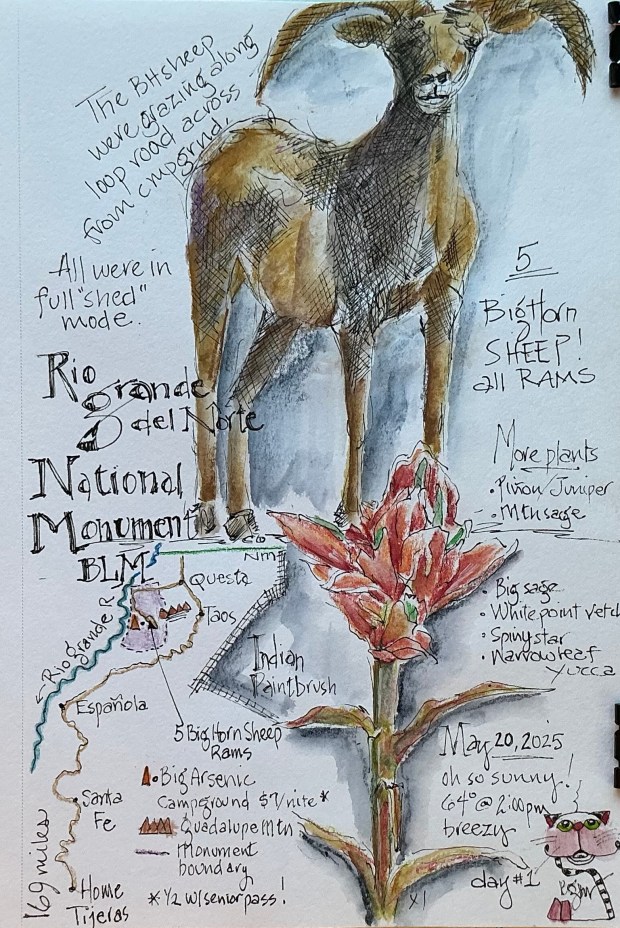 The BHsheep
were grazing along
loop road across
from cmpgrnd.
All were in
full "shed"
mode.
5
BigHorn
SHEEP!
all RAMS
Rio
grande
del Norte
National
Monument
BLM
More plants
• Piñon/Juniper
• Mtn sage
• Big sage
• White point vetch
• Spiny star
• Narrowleaf
Yucca
Co
Nm
Questa
Taos
Rio grande R
Española
Santa
Fe
Home
Tijeras
169 miles
Indian
Paintbrush
5 Big Horn Sheep
Rams
Big Arsenic
Campground $7/nite*
Guadalupe Mtn
Monument
boundary
* 1/2 w/senior pass!
May 20, 2025
oh so sunny!
64° @ 2:00pm
breezy
day #1